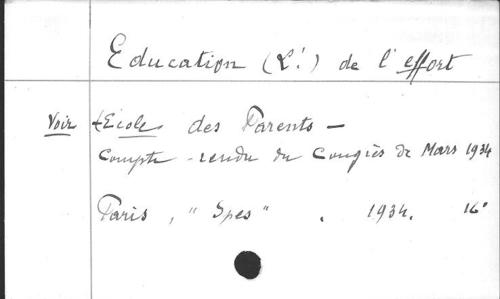 Education (L') de l'effort
Voir Ecole des Parents —
Compte-rendu du Congrès de Mars 1934
Paris, "Spes". 1934. 16°